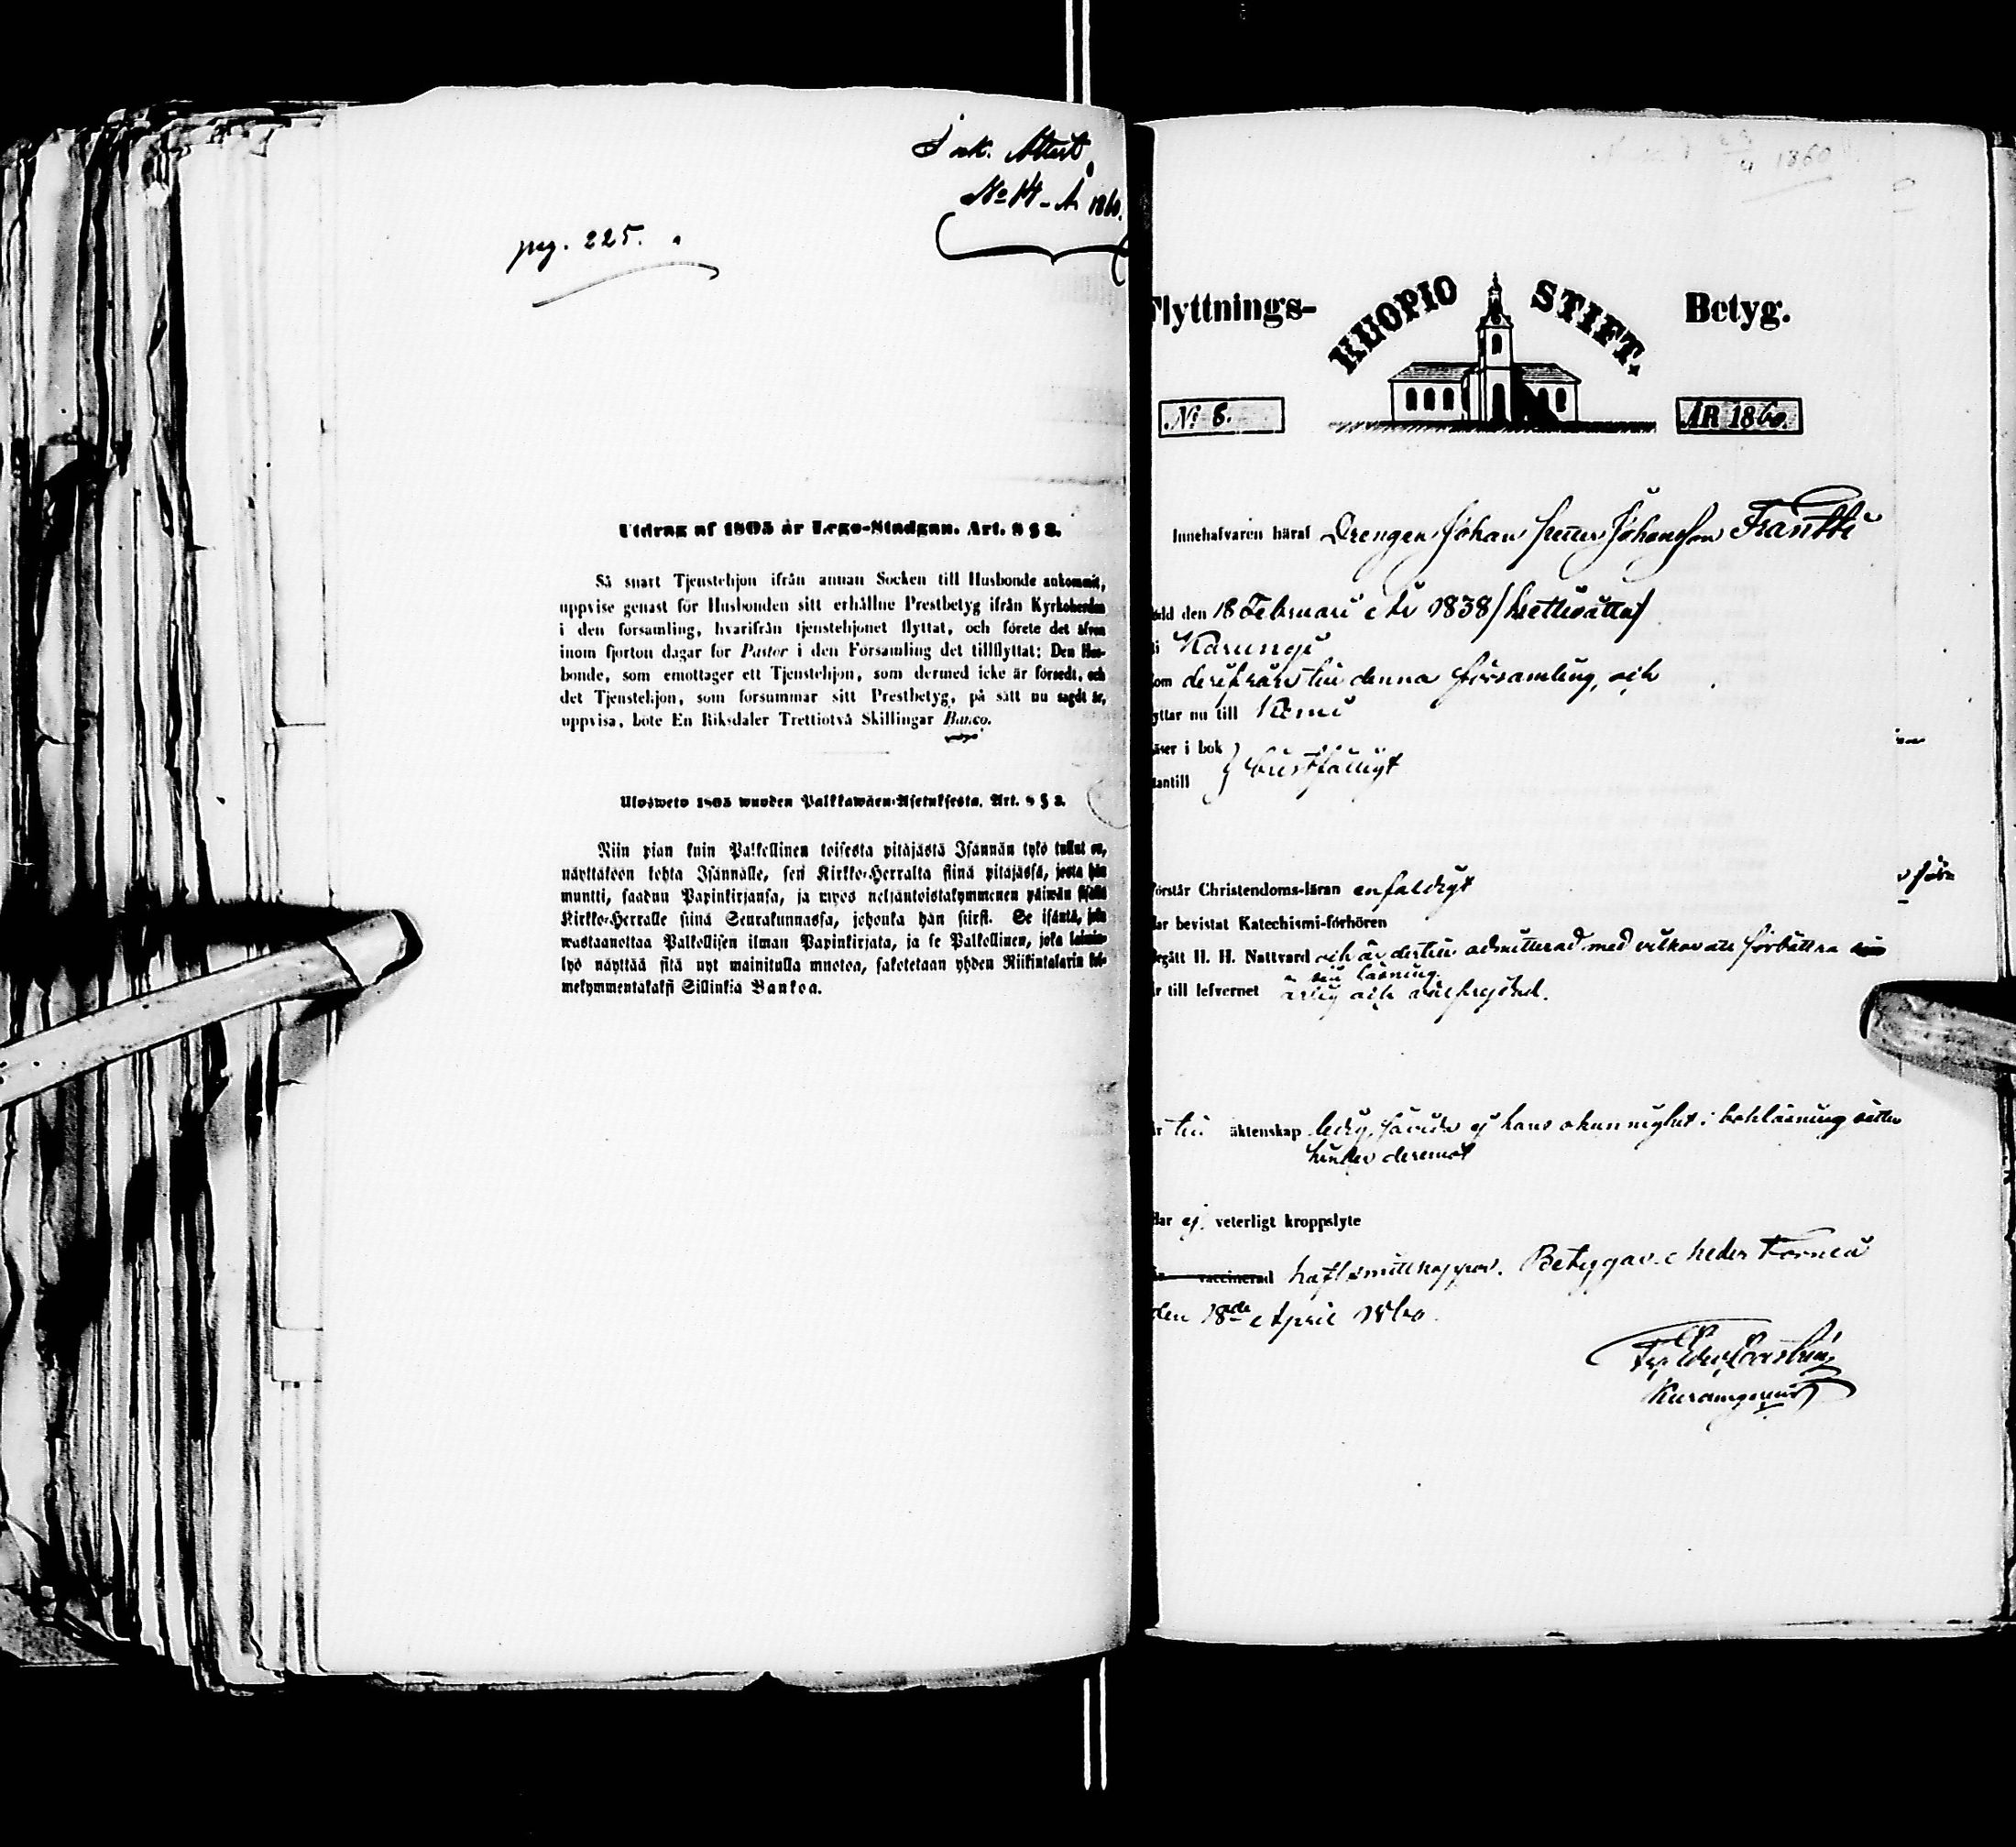 Ink. Attest
No 14 - År 1860.
pag. 225.
Utdrag af 1805 år Lego-Stadgan. Art. 8 § 3.
Så snart Tjenstehjon ifrån annan Socken till Husbonde ankommit,
uppvise genast för Husbonden sitt erhållne Prestbetyg ifrån Kyrkoherden
i den församling, hvarifrån tjenstehjonet flyttat, och förete det äfven
inom fjorton dagar för Pastor i den Församling det tillflyttat; Den Hus-
bonde, som emottager ett Tjenstehjon, som dermed icke är försedt, och
det Tjenstehjon, som försummar sitt Prestbetyg, på sätt nu sagdt är,
uppvisa, böte En Riksdaler Trettiotvå Skillingar Banco.
Ulosweto 1805 wuoden Palkkawäen-Asetuksesta. Art. 8 § 3.
Niin pian kuin Palkollinen toisesta pitäjästä Isännän tykö tullut on,
näyttäköön kohta Isännälle, sen Kirkko-Herralta siinä pitäjässä, josta hän
muutti, saadun Papinkirjansa, ja myös neljäntoistakymmenen päiwän sisällä
Kirkko-Herralle siinä Seurakunnassa, johonka hän siirsi. Se isäntä, joka
wastaanottaa Palkollisen ilman Papinkirjata, ja se Palkollinen, joka laimin-
lyö näyttää sitä nyt mainitulla muotoa, sakotetaan yhden Riikintalarin kol-
mekymmentäkaksi Sillinkiä Bankoa.
1860
Flyttnings- KUOPIO STIFT. Betyg.
No 8. ÅR 1860.
Innehafvaren häraf Drengen Johan Johansson Frantti
född den 18 Februari År 1838
i Karungi
om derifrån till denna församling, och
yttar nu till Kemi
äser i bok
antill bristfälligt
örstår Christendoms-läran enfaldigt
ar bevistat Katechismi-förhören
egått H. H. Nattvard och är dertill admitterad med vilkor att förbättra
sin läsning.
r till lefvernet ärlig och välfrejdad.
r till äktenskap ledig, såvida ej hans okunnighet i bokläsning sätter
hinder deremot
Har ej veterligt kroppslyte
är vaccinerad haft smittkoppor. Betygar. Neder Torneå
den 18de April 1860.